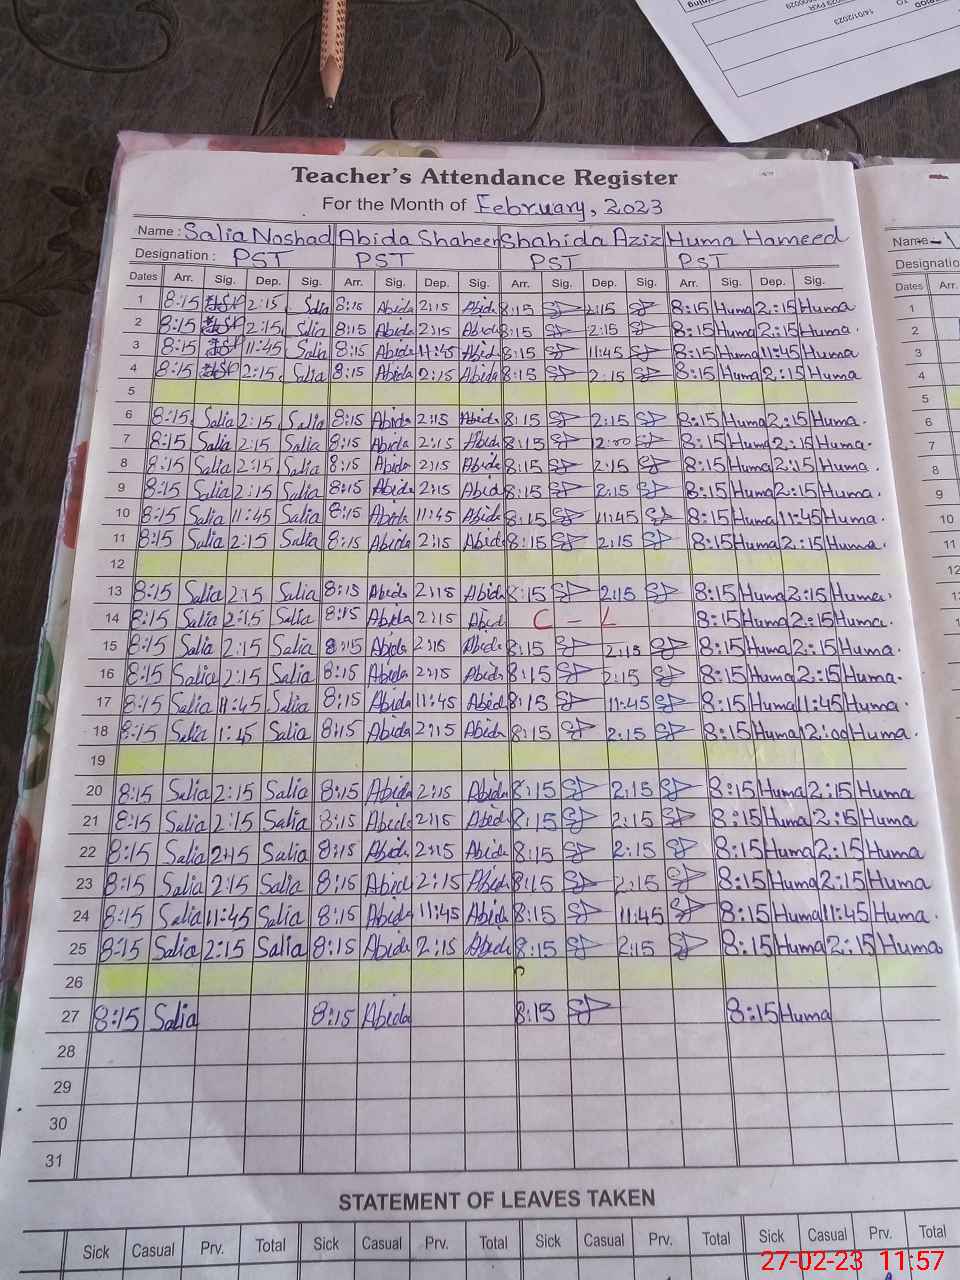 14/01/2023
Teacher's Attendance Register
For the Month of February, 2023
Name : Salia Noshad Abida Shaheen Shahida Aziz Huma Hameed
Designation : PST PST PST PST
Dates Arr. Sig. Dep. Sig. Arr. Sig. Dep. Sig. Arr. Sig. Dep. Sig. Arr. Sig. Dep. Sig.
1 8:15 2:15 Salia 8:15 Abida 2:15 Abida 8:15 2:15 8:15 Huma 2:15 Huma
2 8:15 2:15 Salia 8:15 Abida 2:15 Abida 8:15 2:15 8:15 Huma 2:15 Huma.
3 8:15 11:45 Salia 8:15 Abida 11:45 Abida 8:15 11:45 8:15 Huma 11:45 Huma
4 8:15 2:15 Salia 8:15 Abida 2:15 Abida 8:15 2:15 8:15 Huma 2:15 Huma
5
6 8:15 Salia 2:15 Salia 8:15 Abida 2:15 Abida 8:15 2:15 8:15 Huma 2:15 Huma.
7 8:15 Salia 2:15 Salia 8:15 Abida 2:15 Abida 8:15 12:00 8:15 Huma 2:15 Huma.
8 8:15 Salia 2:15 Salia 8:15 Abida 2:15 Abida 8:15 2:15 8:15 Huma 2:15 Huma.
9 8:15 Salia 2:15 Salia 8:15 Abida 2:15 Abida 8:15 2:15 8:15 Huma 2:15 Huma.
10 8:15 Salia 11:45 Salia 8:15 Abida 11:45 Abida 8:15 11:45 8:15 Huma 11:45 Huma.
11 8:15 Salia 2:15 Salia 8:15 Abida 2:15 Abida 8:15 2:15 8:15 Huma 2:15 Huma.
12
13 8:15 Salia 2:15 Salia 8:15 Abida 2:15 Abida 8:15 2:15 8:15 Huma 2:15 Huma.
14 8:15 Salia 2:15 Salia 8:15 Abida 2:15 Abida C – L 8:15 Huma 2:15 Huma.
15 8:15 Salia 2:15 Salia 8:15 Abida 2:15 Abida 8:15 2:15 8:15 Huma 2:15 Huma.
16 8:15 Salia 2:15 Salia 8:15 Abida 2:15 Abida 8:15 2:15 8:15 Huma 2:15 Huma.
17 8:15 Salia 11:45 Salia 8:15 Abida 11:45 Abida 8:15 11:45 8:15 Huma 11:45 Huma.
18 8:15 Salia 1:45 Salia 8:15 Abida 2:15 Abida 8:15 2:15 8:15 Huma 12:00 Huma.
19
20 8:15 Salia 2:15 Salia 8:15 Abida 2:15 Abida 8:15 2:15 8:15 Huma 2:15 Huma
21 8:15 Salia 2:15 Salia 8:15 Abida 2:15 Abida 8:15 2:15 8:15 Huma 2:15 Huma
22 8:15 Salia 2:15 Salia 8:15 Abida 2:15 Abida 8:15 2:15 8:15 Huma 2:15 Huma
23 8:15 Salia 2:15 Salia 8:15 Abida 2:15 Abida 8:15 2:15 8:15 Huma 2:15 Huma
24 8:15 Salia 11:45 Salia 8:15 Abida 11:45 Abida 8:15 11:45 8:15 Huma 11:45 Huma.
25 8:15 Salia 2:15 Salia 8:15 Abida 2:15 Abida 8:15 2:15 8:15 Huma 2:15 Huma
26
27 8:15 Salia 8:15 Abida 8:15 8:15 Huma
28
29
30
31
STATEMENT OF LEAVES TAKEN
Sick Casual Prv. Total Sick Casual Prv. Total Sick Casual Prv. Total Sick Casual Prv. Total
Name
Dates Arr.
1
2
3
4
5
6
7
8
9
10
11
12
27-02-23 11:57